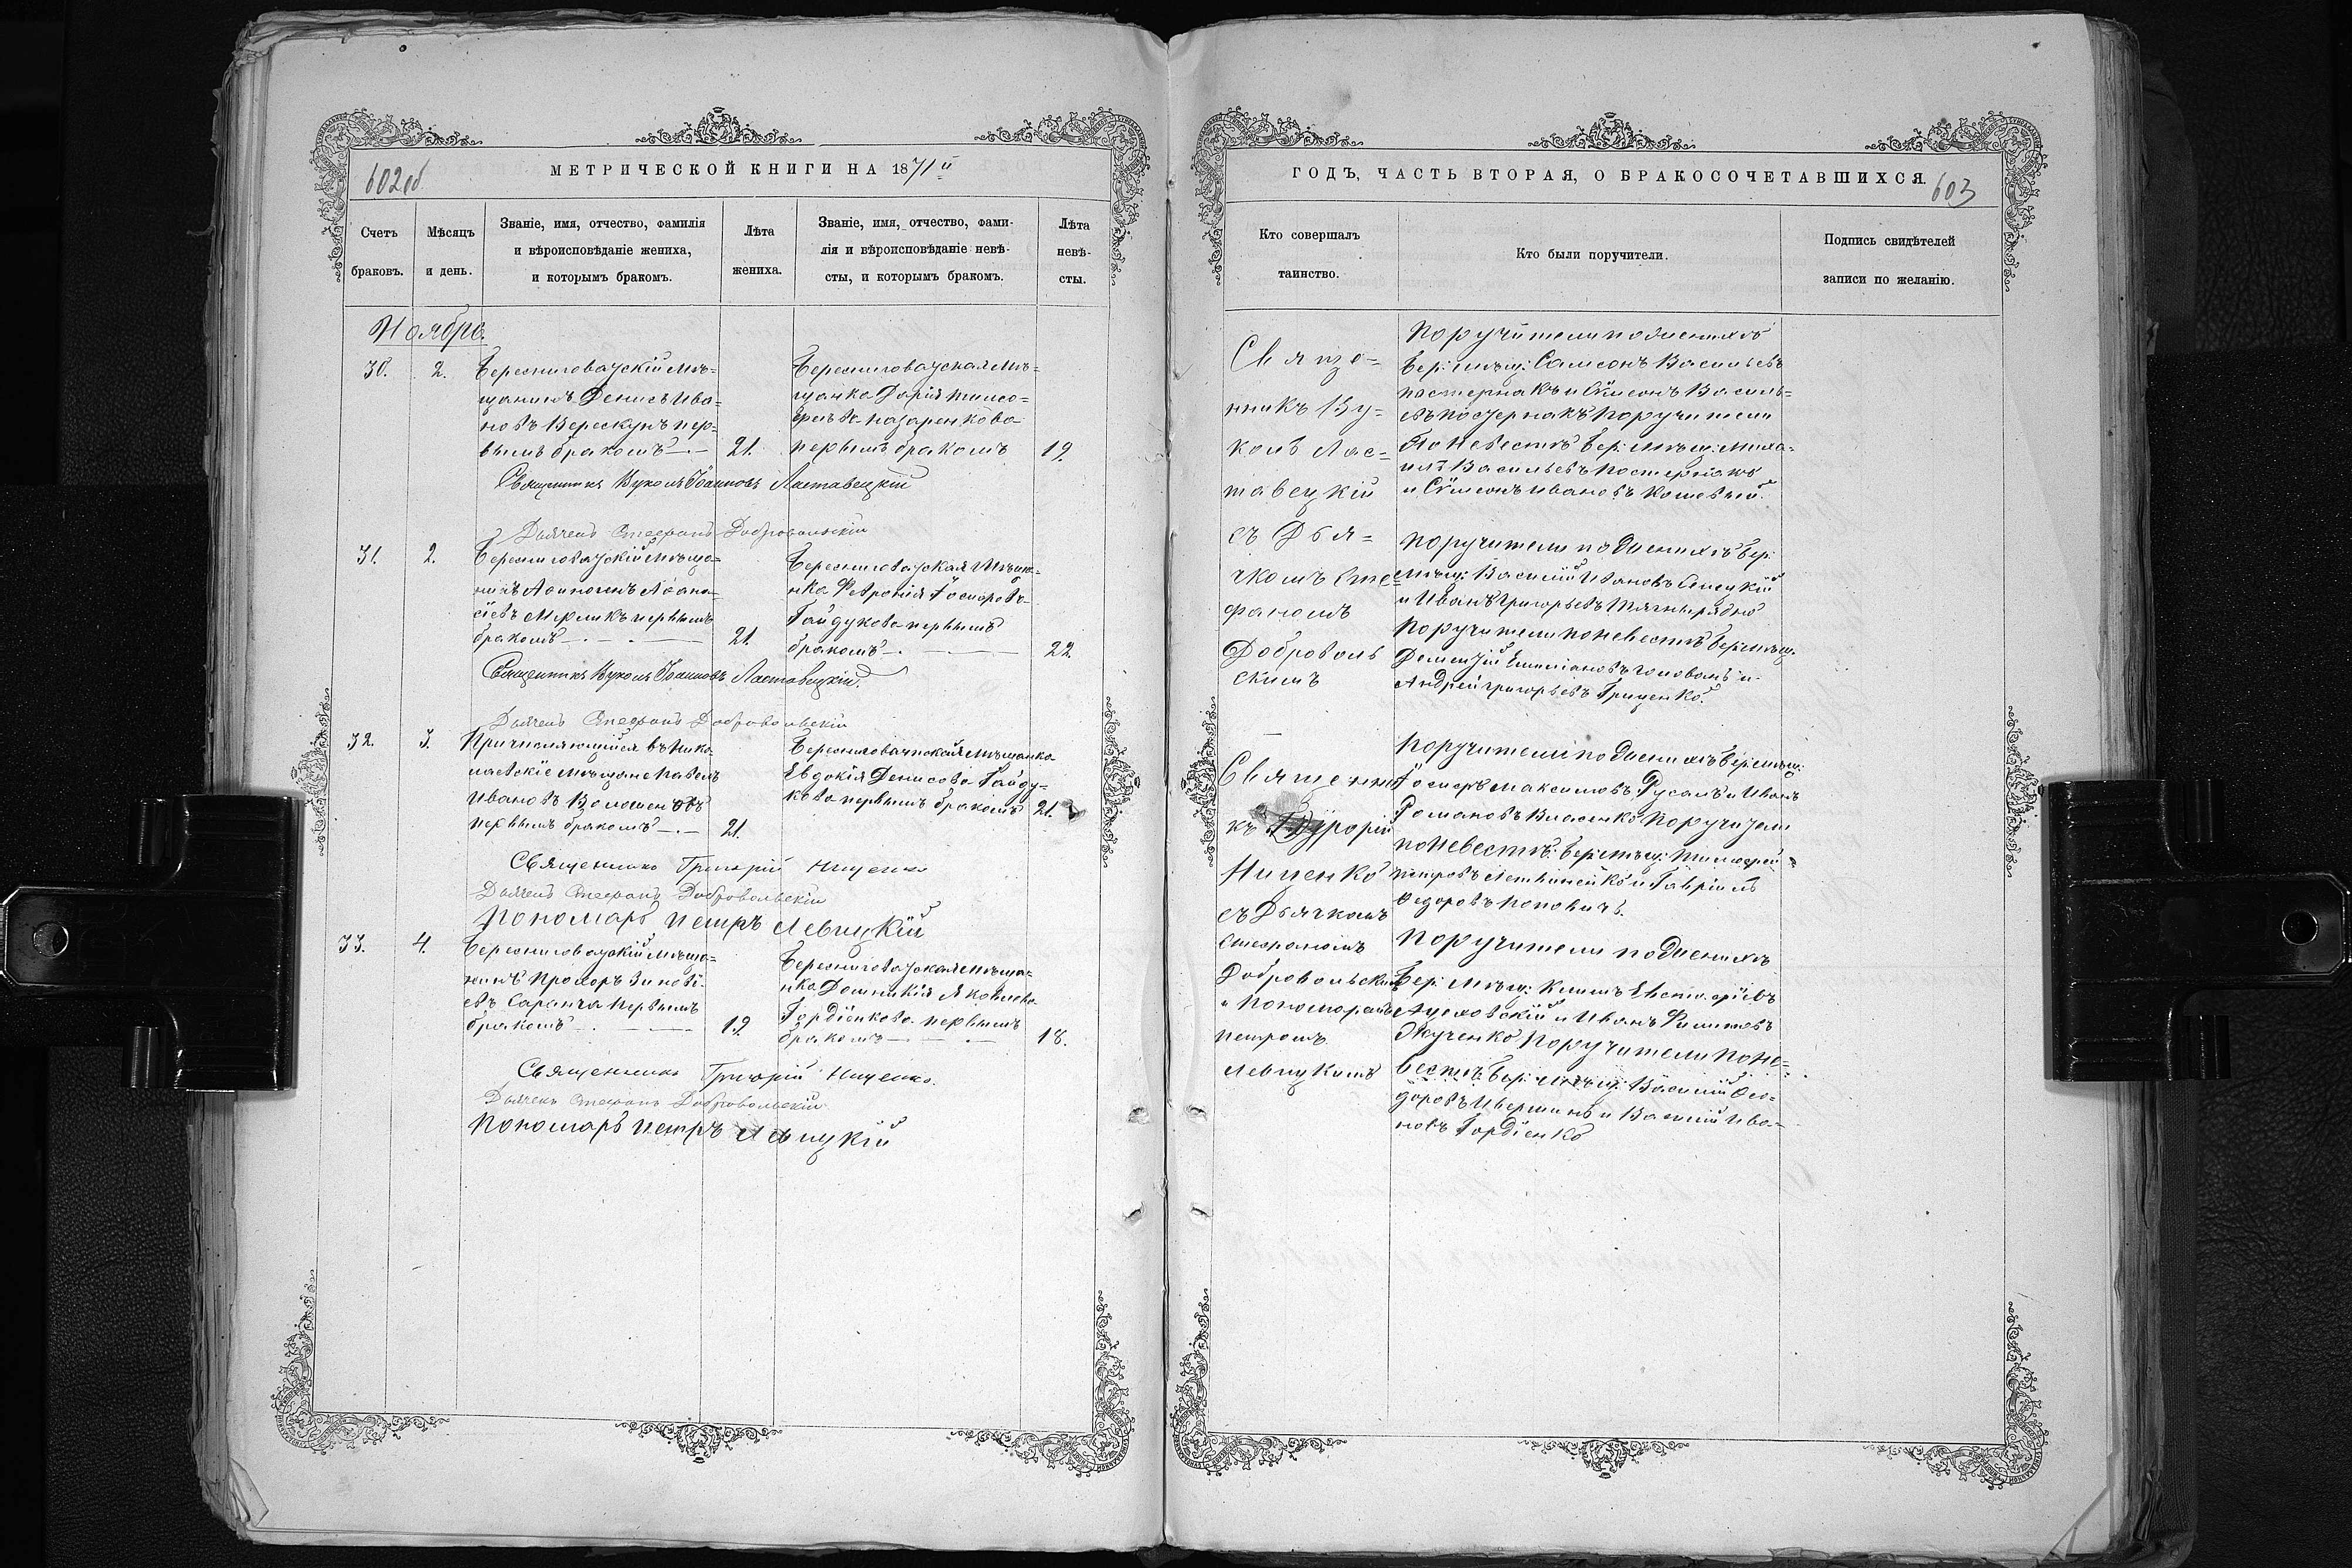 602об
МЕТРИЧЕСКОЙ КНИГИ НА 1871й
Счетъ браковъ.
Мѣсяцъ и день.
Званіе, имя, отчество, фамилія
и вѣроисповѣданіе жениха,
и которымъ бракомъ.
Лѣта
жениха.
Званіе, имя, отчество, фами-
лія и вѣроисповѣданіе невѣ-
сты, и которымъ бракомъ.
Лѣта
невѣ-
сты.
Ноябрь.
30. 2.
Береснеговатскій мѣ-
щанинъ Денисъ Ива-
новъ Верескунъ пер-
вымъ бракомъ 21.
Береснеговатская мѣ-
щанка Дарія Тимо-
фѣева Назаренкова
первымъ бракомъ 19.
Священникъ Вуколъ Іоанновъ Ластавецкій
Дьячекъ Стефанъ Добровольскій
31. 2.
Береснеговатскій мѣща-
нинъ Аѳана-
сіевъ первымъ
бракомъ 21.
Береснеговатская мѣща-
нка Фетронія Іосифова
Гайдукова первымъ
бракомъ 22.
Священникъ Вуколъ Іоанновъ Ластавецкій.
Дьячекъ Стефанъ Добровольскій
32. 3.
Причисляющійся въ Нико-
лаевскіе мѣщане Павелъ
Ивановъ
первымъ бракомъ 21.
мѣщанка
Евдокія Денисова Гайду-
кова первымъ бракомъ 21.
Священникъ Григорій Ниценко
Дьячекъ Стефанъ Добровольскій
Пономарь Петръ Левицкій
33. 4.
Береснеговатскій мѣща-
нинъ Прохоръ Зиновѣ-
евъ Саранча первымъ
бракомъ 19
Береснеговатская мѣща-
нка Домникія Яковлева
Гордіенкова первымъ
бракомъ 18.
Священникъ Григорій Ниценко.
Дьячекъ Стефанъ Добровольскій
Пономарь Петръ Левицкій
ГОДЪ, ЧАСТЬ ВТОРАЯ, О БРАКОСОЧЕТАВШИХСЯ.
603
Кто совершалъ
таинство.
Кто были поручители.
Подпись свидѣтелей
записи по желанію.
Свяще-
нникъ Ву-
колъ Лас-
тавецкій
съ Дья-
чкомъ Сте-
фаномъ
Доброволь
скимъ
Поручители по женихѣ
Бер: мѣщ: Самсонъ Васильевъ
Пастернакъ и Сѵмеонъ Василь-
евъ Пастернакъ Поручители
По невестѣ Бер: мѣщ: Миха-
илъ Васильевъ Пастернакъ
и Сѵмеонъ Ивановъ Кошевый.
Поручители по женихѣ Бер:
мѣщ: Василій Ивановъ
и Иванъ Григорьевъ Тягнирядно
Поручители по невестѣ Бер: мѣщ.
Дементій Емиліановъ и
Андрей Григорьевъ Гриценко.
Священни
къ Григорій
Ниценко
съ Дьячкомъ
Стефаномъ
Добровольскимъ
и Пономаремъ
Петромъ
Левицкимъ
Поручители по женихѣ Бер: мѣщ:
Іосифъ Максимовъ Русалъ и Иванъ
Романовъ Власенко Поручители
по невестѣ: Бер: мѣщ: Тимофей
Петровъ и Гавріилъ
Ѳедоровъ Поповичъ.
Поручители по женихѣ
Бер: мѣщ: Климъ
и Иванъ Филиповъ
Поручители по не-
вестѣ Бер: мѣщ: Василій Ѳео-
доровъ и Василій Ива-
новъ Гордіенко